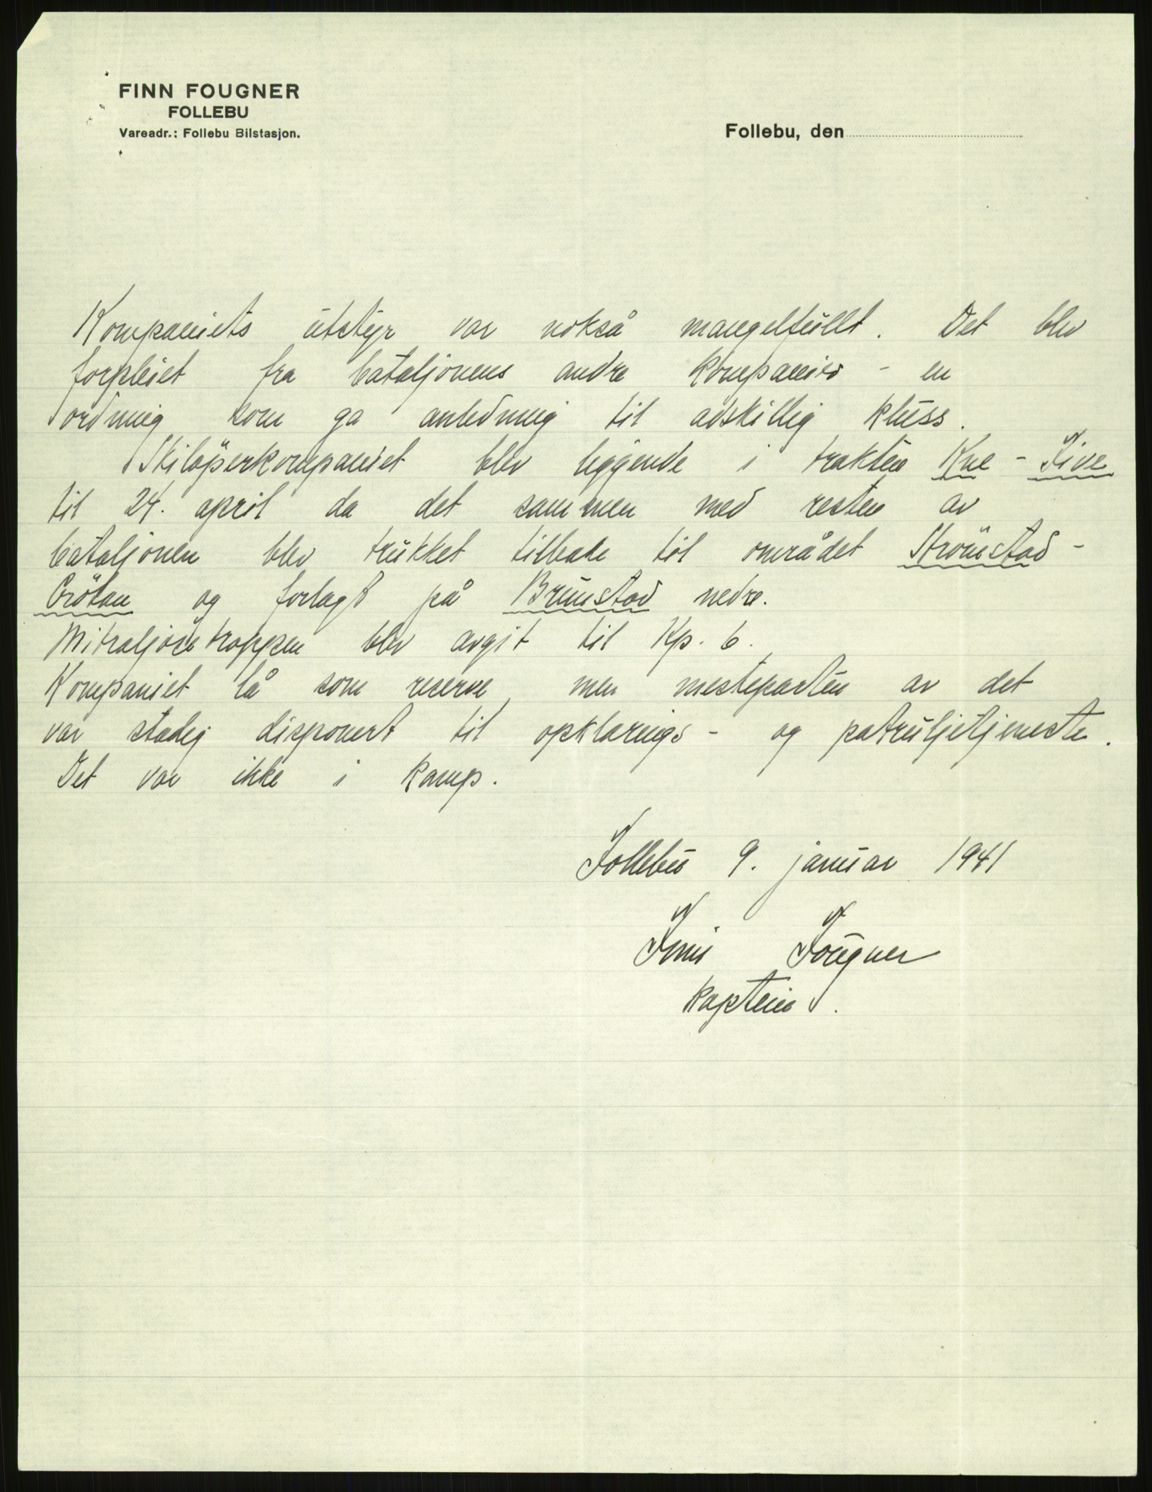 FINN FOUGNER
FOLLEBU
Vareadr.: Follebu Bilstasjon.
Follebu, den
Kompaniets utstyr var nokså mangelfullt. Det blev
forpleiet fra bataljonens andre kompanier - en
ordning som ga anledning til adskillig kluss.
Skiløperkompaniet blev liggende i trakten Kne - Five
til 24. april da det sammen med resten av
bataljonen blev trukket tilbake til området Strømstad -
og forlagt på Brunstad nedre.
Mitraljøsetroppen blev avgit til Kp. 6.
Kompaniet lå som reserve, men mesteparten av det
var stadig disponert til opklarings- og patruljetjeneste.
Det var ikke i kamp.
Follebu 9. januar 1941
Finn Fougner
kaptein.